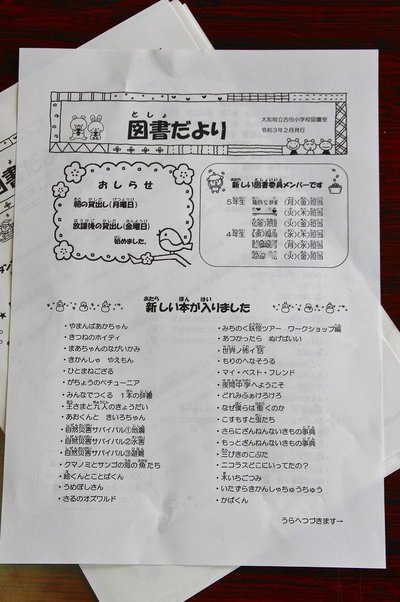 としょ
図書だより
大和町立吉田小学校図書室
令和3年2月発行
おしらせ
朝の貸出し(月曜日)
放課後の貸出し(金曜日)
始めました。
新しい図書委員メンバーです
5年生
(月)(金)担当
(火)(木)担当
(水)(金)担当
4年生
(水)(木)担当
(月)(火)担当
新しい本が入りました
・やまんばあかちゃん
・きつねのホイティ
・まあちゃんのながいかみ
・きかんしゃ やえもん
・ひとまねこざる
・がちょうのペチューニア
・みんなでつくる 1本の辞書
・王さまと九人のきょうだい
・あおくんと きいろちゃん
・自然災害サバイバル①地震
・自然災害サバイバル②水害
・自然災害サバイバル③避難
・クマノミとサンゴの海の魚たち
・絵くんとことばくん
・うめぼしさん
・さるのオズワルド
・みちのく妖怪ツアー ワークショップ編
・あつかったら ぬげばいい
・世界の怖イ話
・もりのへなそうる
・マイ・ベスト・フレンド
・夜間中学へようこそ
・どれみふぁけろけろ
・なぜ僕らは働くのか
・こすもすと虫たち
・さらにざんねんないきもの事典
・もっとざんねんないきもの事典
・三びきのこぶた
・ニコラスどこにいってたの?
・木いちごつみ
・いたずらきかんしゃちゅうちゅう
・かばくん
うらへつづきます→